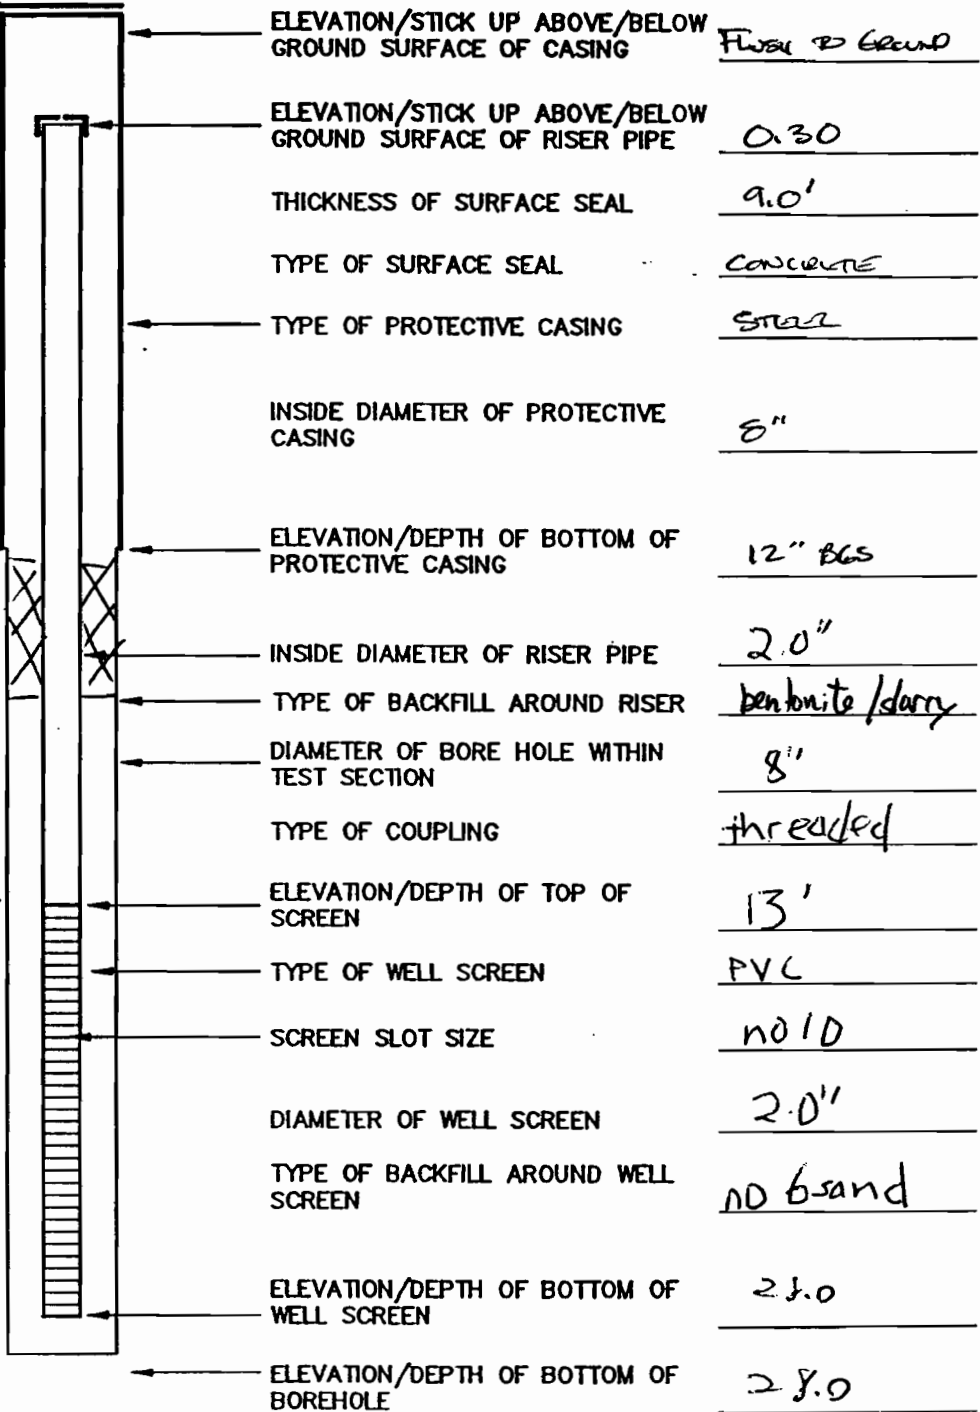 ELEVATION/STICK UP ABOVE/BELOW
GROUND SURFACE OF CASING FLUSH TO GROUND
ELEVATION/STICK UP ABOVE/BELOW
GROUND SURFACE OF RISER PIPE 0.30
THICKNESS OF SURFACE SEAL 9.0'
TYPE OF SURFACE SEAL CONCRETE
TYPE OF PROTECTIVE CASING STEEL
INSIDE DIAMETER OF PROTECTIVE
CASING 8"
ELEVATION/DEPTH OF BOTTOM OF
PROTECTIVE CASING 12" BGS
INSIDE DIAMETER OF RISER PIPE 2.0"
TYPE OF BACKFILL AROUND RISER bentonite/slurry
DIAMETER OF BORE HOLE WITHIN
TEST SECTION 8"
TYPE OF COUPLING threaded
ELEVATION/DEPTH OF TOP OF
SCREEN 13'
TYPE OF WELL SCREEN PVC
SCREEN SLOT SIZE no 10
DIAMETER OF WELL SCREEN 2.0"
TYPE OF BACKFILL AROUND WELL
SCREEN no 6 sand
ELEVATION/DEPTH OF BOTTOM OF
WELL SCREEN
ELEVATION/DEPTH OF BOTTOM OF
BOREHOLE 28.0